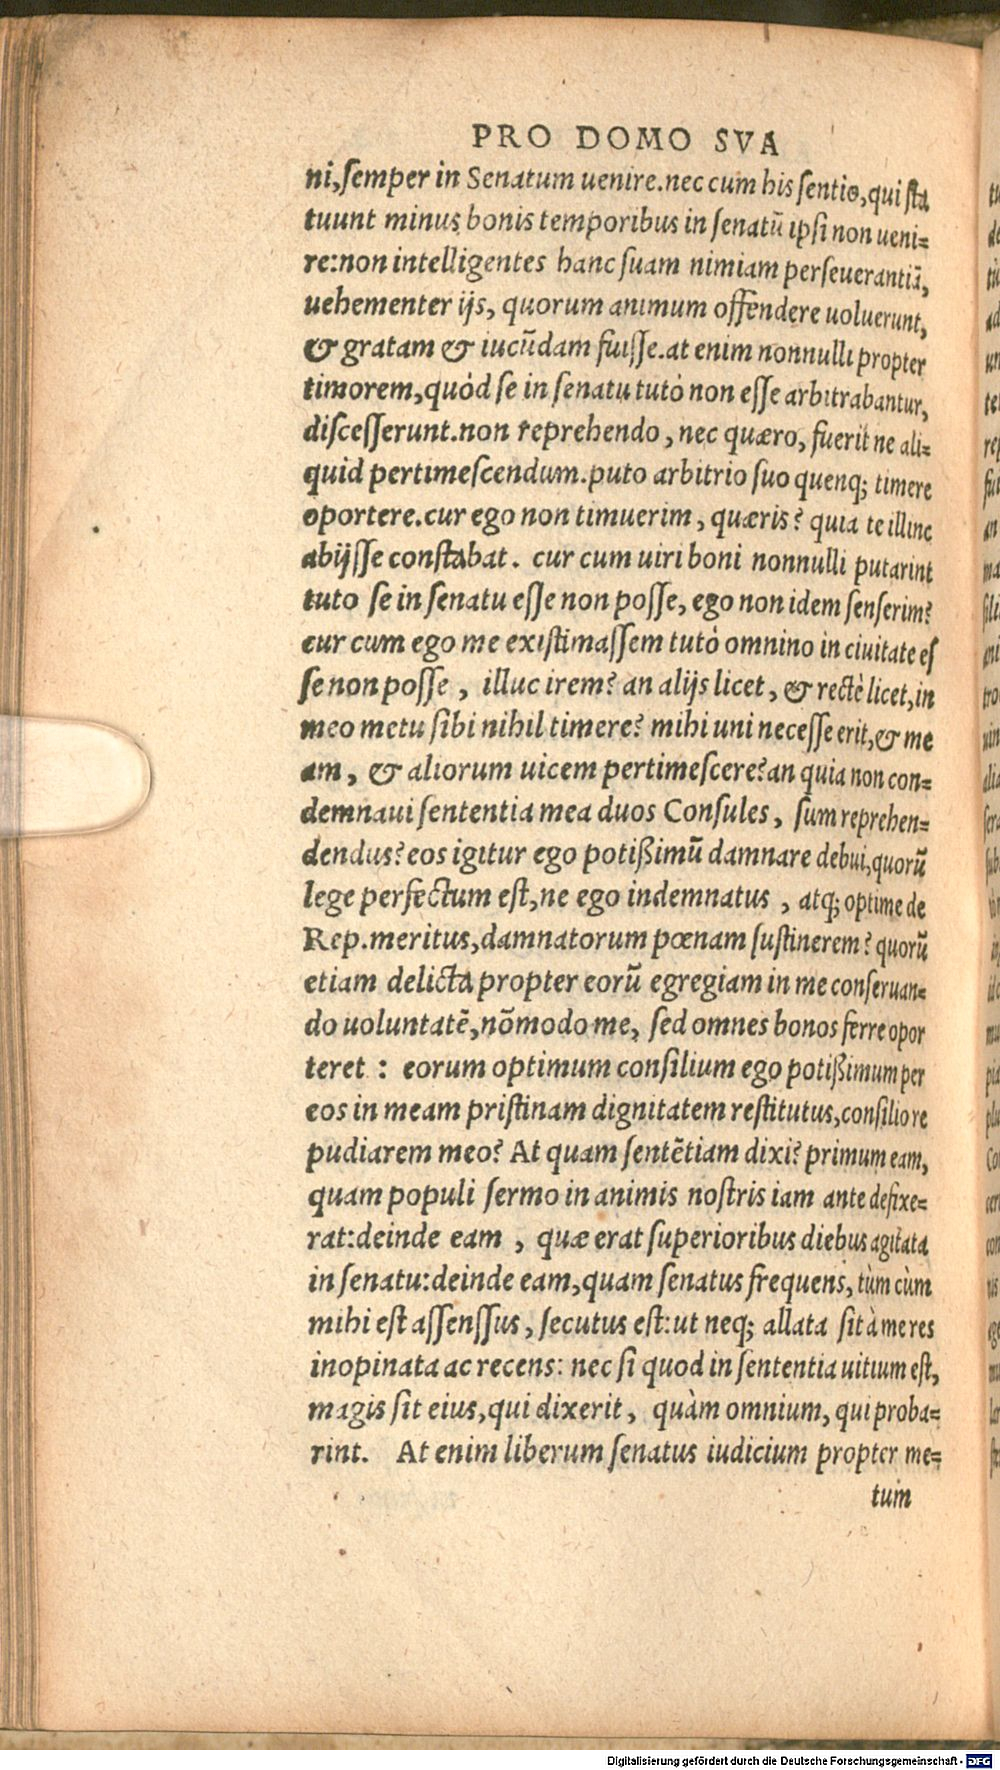 PRO DOMO SVA
ni,ſemper in Senatum uenire.nec cum his ſentio,qui ſta
tuunt minus bonis temporibus in ſenatū ipſi non ueni=
re:non intelligentes hanc ſuam nimiam perſeuerantiā,
uehementer ijs, quorum animum offendere uoluerunt,
& gratam & iucūdam fuiſſe.at enim nonnulli propter
timorem,quòd ſe in ſenatu tutò non eſſe arbitrabantur,
diſceſſerunt.non reprehendo, nec quæro, fuerit ne ali=
quid pertimeſcendum.puto arbitrio ſuo quenq; timere
oportere.cur ego non timuerim, quæris? quia te illinc
abijſſe conſtabat. cur cum uiri boni nonnulli putarint
tuto ſe in ſenatu eſſe non poſſe, ego non idem ſenſerim?
cur cum ego me exiſtimaſſem tutò omnino in ciuitate eſ
ſe non poſſe, illuc irem? an alijs licet, & rectè licet,in
meo metu ſibi nihil timere? mihi uni neceſſe erit,& me
am, & aliorum uicem pertimeſcere?an quia non con=
demnaui ſententia mea duos Conſules, ſum reprehen=
dendus? eos igitur ego potißimū damnare debui,quorū
lege perfectum eſt,ne ego indemnatus, atq; optime de
Rep.meritus,damnatorum pœnam ſuſtinerem? quorū
etiam delicta propter eorū egregiam in me conſeruan=
do uoluntatē,nōmodo me, ſed omnes bonos ferre opor
teret : eorum optimum conſilium ego potißimum per
eos in meam priſtinam dignitatem reſtitutus,conſilio re
pudiarem meo? At quam ſentētiam dixi? primum eam,
quam populi ſermo in animis noſtris iam ante defixe=
rat:deinde eam, quæ erat ſuperioribus diebus agitata
in ſenatu:deinde eam,quam ſenatus frequens, tùm cùm
mihi eſt aſſenſſus, ſecutus eſt:ut neq; allata ſit à me res
inopinata ac recens: nec ſi quod in ſententia uitium eſt,
magis ſit eius,qui dixerit, quàm omnium, qui proba=
rint. At enim liberum ſenatus iudicium propter me=
tum
Digitalisierung gefördert durch die Deutsche Forschungsgemeinschaft - DFG